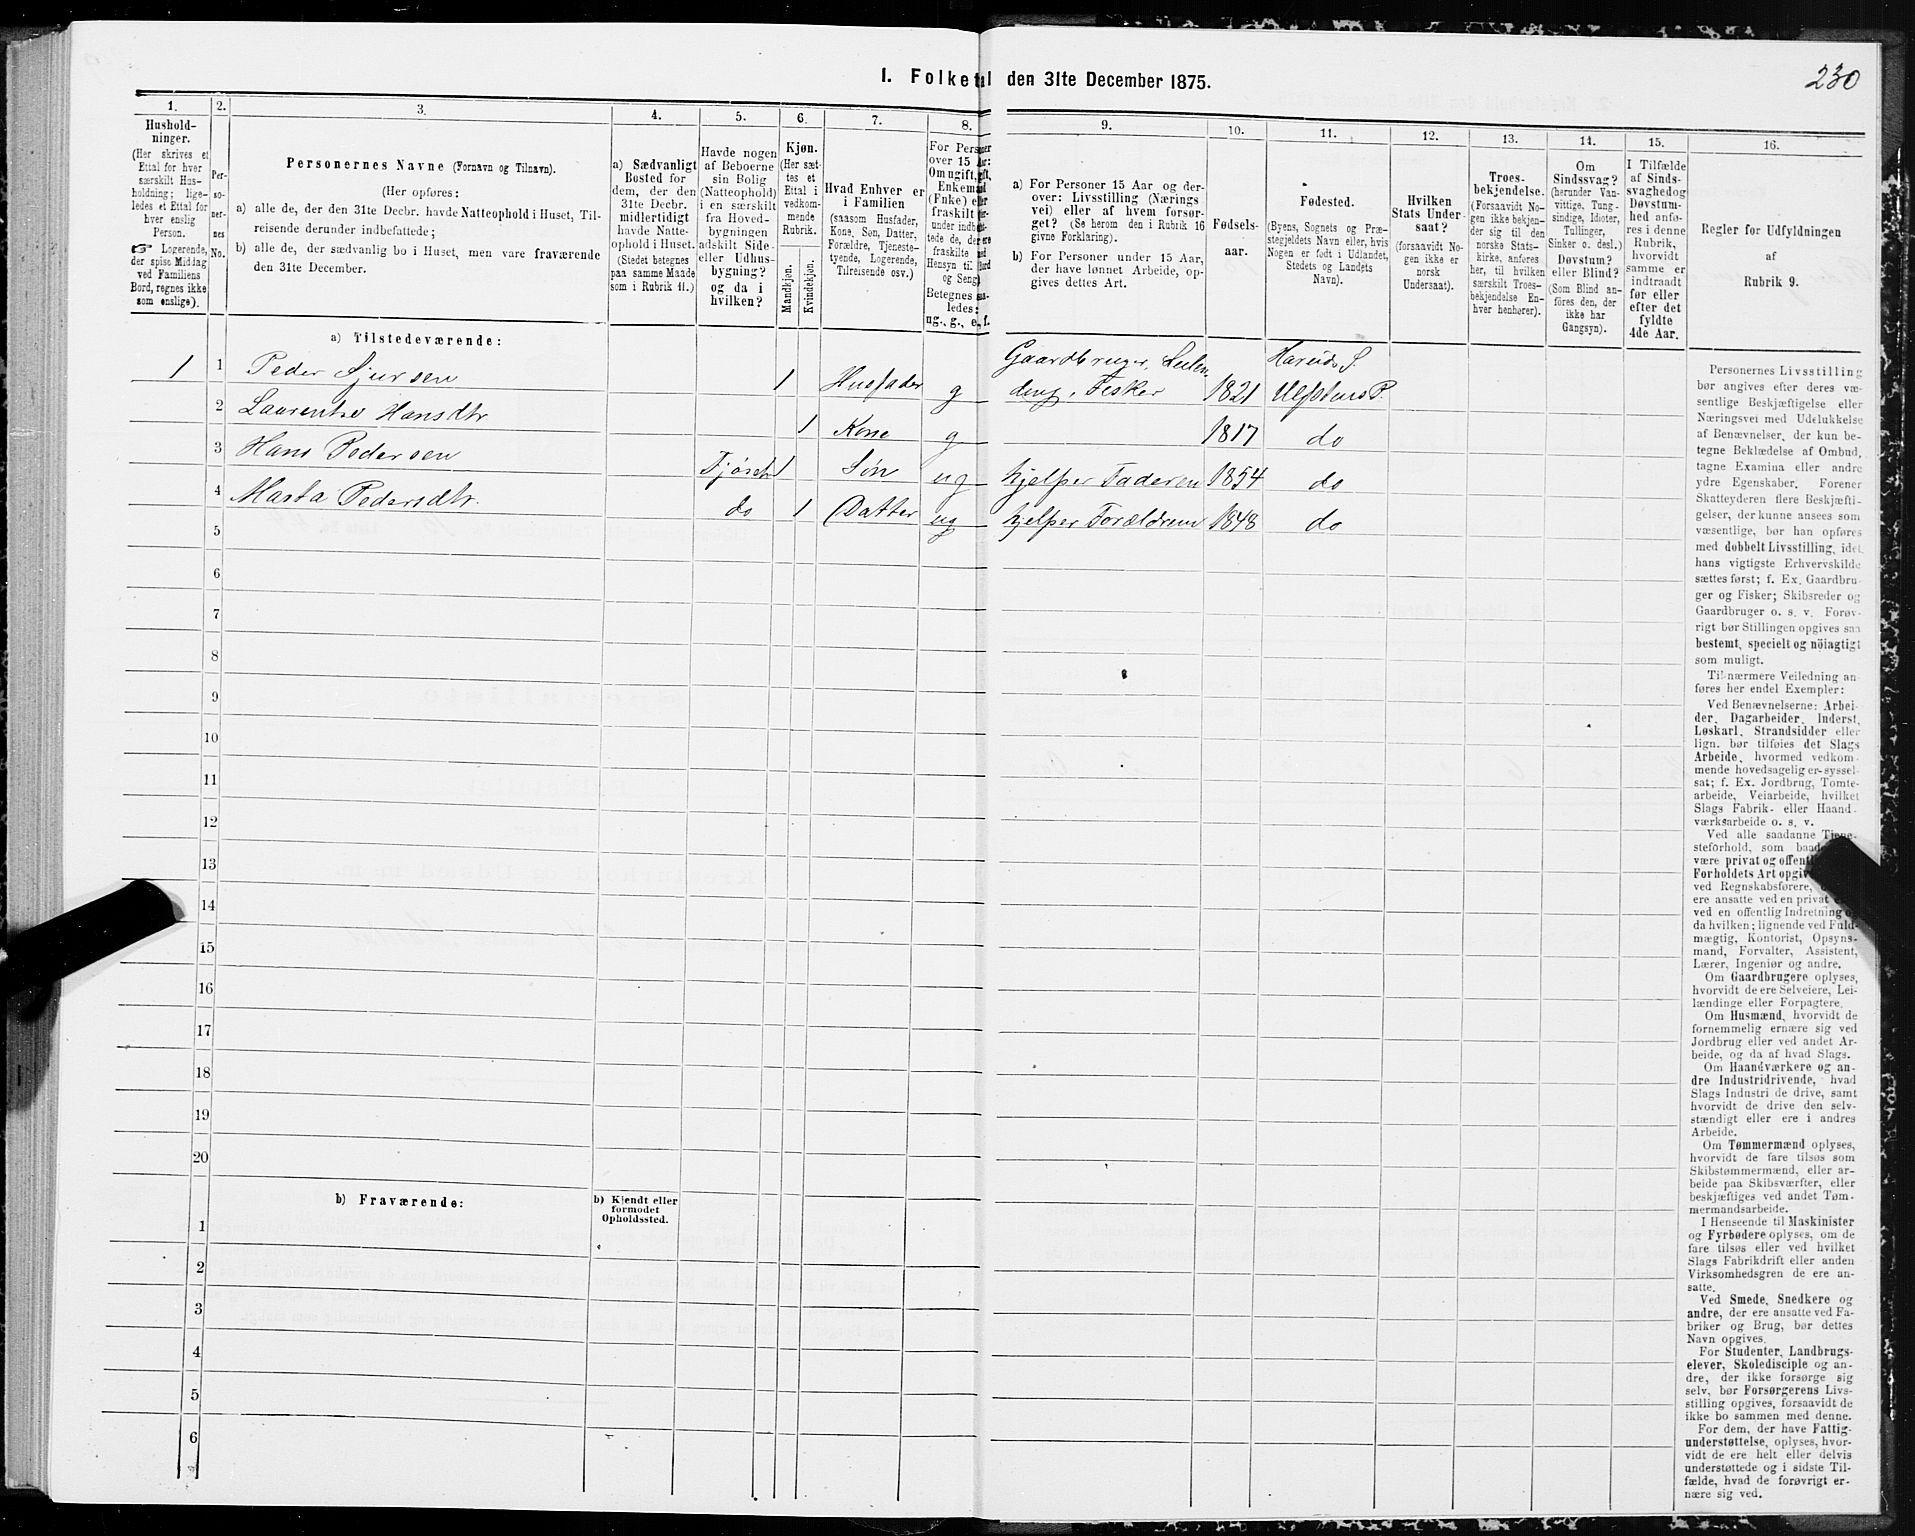 230
I. Folketal den 31te December 1875.
1.
Hushold-
ninger.
(Her skrives et
Ettal for hver
særskilt Hus-
holdning; lige-
ledes et Ettal for
hver enslig
Person.
Logerende,
der spise Middag
ved Familiens
Bord, regnes ikke
som enslige).
2.
Per-
so-
ner-
nes
No.
3.
Personernes Navne (Fornavn og Tilnavn).
(Her opføres:
a) alle de, der den 31te Decbr. havde Natteophold i Huset, Til-
reisende derunder indbefattede;
b) alle de, der sædvanlig bo i Huset, men vare fraværende
den 31te December.
4.
a) Sædvanligt
Bosted for
dem, der den
31te Decbr.
midlertidigt
havde Natte-
ophold i Huset.
(Stedet betegnes
paa samme Maade
som i Rubrik 11.)
5.
Havde nogen
af Beboerne
sin Bolig
(Natteophold)
i en særskilt
fra Hoved-
bygningen
adskilt Side-
eller Udhus-
bygning?
og da i
hvilken?
6.
Kjøn.
(Her sæt-
tes et
Ettal i
vedkom-
mende
Rubrik.
Mandkjøn.
Kvindekjøn.
7.
Hvad Enhver er
i Familien
(saasom Husfader,
Kone, Søn, Datter,
Forældre, Tjeneste-
tyende, Logerende,
Tilreisende osv.)
8.
For Personer
over 15 Aar:
Om ugift, gift,
Enkemand
(Enke) eller
fraskilt
Betegnes saa-
ledes:
ug., g., e., f.
9.
a) For Personer 15 Aar og der-
over: Livsstilling (Nærings
vei) eller af hvem forsør-
get? (Se herom den i Rubrik 16
givne Forklaring).
b) For Personer under 15 Aar,
der have lønnet Arbeide, op-
gives dettes Art.
10.
Fødsels-
aar.
11.
Fødested.
(Byens, Sognets og Præ-
stegjeldets Navn eller, hvis
Nogen er født i Udlandet,
Stedets og Landets
Navn).
12.
Hvilken
Stats Under-
saat?
(forsaavidt No-
gen ikke er
norsk
Undersaat).
13.
Troes-
bekjendelse.
(Forsaavidt No-
gen ikke bekjen-
der sig til den
norske Stats-
kirke, anføres
her, til hvilken
særskilt Troes-
bekjendelse En-
hver henhører).
14.
Om
Sindssvag?
(herunder Van-
vittige, Tung-
sindige, Idioter,
Tullinger,
Sinker o. desl.)
Døvstum?
eller Blind?
(Som Blind an-
føres den, der
ikke har
Gangsyn).
15.
I Tilfælde
af Sinds-
svaghed og
Døvstum-
hed anfø-
res i denne
Rubrik,
hvorvidt
samme er
indtraadt
før eller
efter det
fyldte
4de Aar.
16.
Regler for Udfyldningen
af
Rubrik 9.
a) Tilstedeværende:
1 1 Peder Sjursen 1 Husfader g Gaardbruger, Leilen-
ding, Fisker 1821 Hareids S.
Ulfstens P.
2 Laurentse Hansdtr 1 Kone g 1817 do
3 Hans Pedersen Fjøset 1 Søn ug hjelper Faderen 1854 do
4 Marta Pedersdtr. do 1 Datter ug hjelper Forældrene 1848 do
5
6
7
8
9
10
11
12
13
14
15
16
17
18
19
20
b) Fraværende:
b) Kjendt eller
formodet
Opholdssted.
1
2
3
4
5
6
Personernes Livsstilling
bør angives efter deres væ-
sentlige Beskjæftigelse eller
Næringsvei med Udelukkelse
af Benævnelser, der kun be-
tegne Beklædelse af Ombud,
tagne Examina eller andre
ydre Egenskaber. Forener
Skatteyderen flere Beskjæfti-
gelser, der kunne ansees som
væsentlige, bør han opføres
med dobbelt Livsstilling, idet
hans vigtigste Erhvervskilde
sættes først; f. Ex. Gaardbru-
ger og Fisker; Skibsreder og
Gaardbruger o. s. v. Forøv-
rigt bør Stillingen opgives saa
bestemt, specielt og nöiagtigt
som muligt.
Til nærmere Veiledning an-
føres her endel Exempler:
Ved Benævnelserne: Arbei-
der, Dagarbeider, Inderst,
Løskarl, Strandsidder eller
lign. bør tilføies det Slags
Arbeide, hvormed vedkom-
mende hovedsagelig er syssel-
sat; f. Ex. Jordbrug, Tomte-
arbeide, Veiarbeide, hvilket
Slags Fabrik- eller Haand-
værksarbeide o. s. v.
Ved alle saadanne Tjene-
steforhold, som baade
være privat og offentligt
Forholdets Art opgives
ved Regnskabsførere,
ere ansatte ved en privat
ved en offentlig Indretning og
da hvilken; lignende ved Fuld-
mægtig, Kontorist, Opsyns-
mand, Forvalter, Assistent,
Lærer, Ingeniør og andre.
Om Gaardbrugere oplyses,
hvorvidt de ere Selveiere, Lei-
lændinge eller Forpagtere.
Om Husmænd, hvorvidt de
fornemmelig ernære sig ved
Jordbrug eller ved andet Ar-
beide, og da af hvad Slags.
Om Haandværkere og an-
dre Industridrivende, hvad
Slags Industri de drive, samt
hvorvidt de drive den selv-
stændigt eller ere i andres
Arbeide.
Om Tømmermænd oplyses,
hvorvidt de fare tilsøs som
Skibstømmermænd, eller ar-
beide paa Skibsværfter, eller
beskjæftiges ved andet Tøm-
mermandsarbeide.
I Henseende til Maskinister
og Fyrbødere oplyses, om de
fare tilsøs eller ved hvilket
Slags Fabrikdrift eller anden
Virksomhedsgren de ere an-
satte.
Ved Smede, Snedkere og
andre, der ere ansatte ved Fa-
briker og Brug, bør dettes
Navn opgives.
For Studenter, Landbrugs-
elever, Skoledisciple og an-
dre, der ikke forsørge sig
selv, bør Forsørgerens Livs-
stilling opgives, forsaavidt de
ikke bo sammen med denne.
For dem, der have Fattig-
understøttelse, oplyses, hvor-
vidt de ere helt eller delvis
understøttede og i sidste Til-
fælde, hvad de forøvrigt er-
nære sig ved.